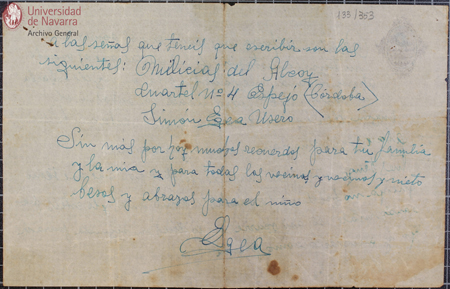 Universidad
de Navarra
Archivo General
133/353
las señas que teneis que escribir son las
siguientes: Milicias del Alcoy
Cuartel Nº 4 Espejo (Córdoba)
Simón Egea Usero
Sin más por hoy muchos recuerdos para tu familia
y la mia y para todos los vecinos y
besos y abrazos para el niño
Egea